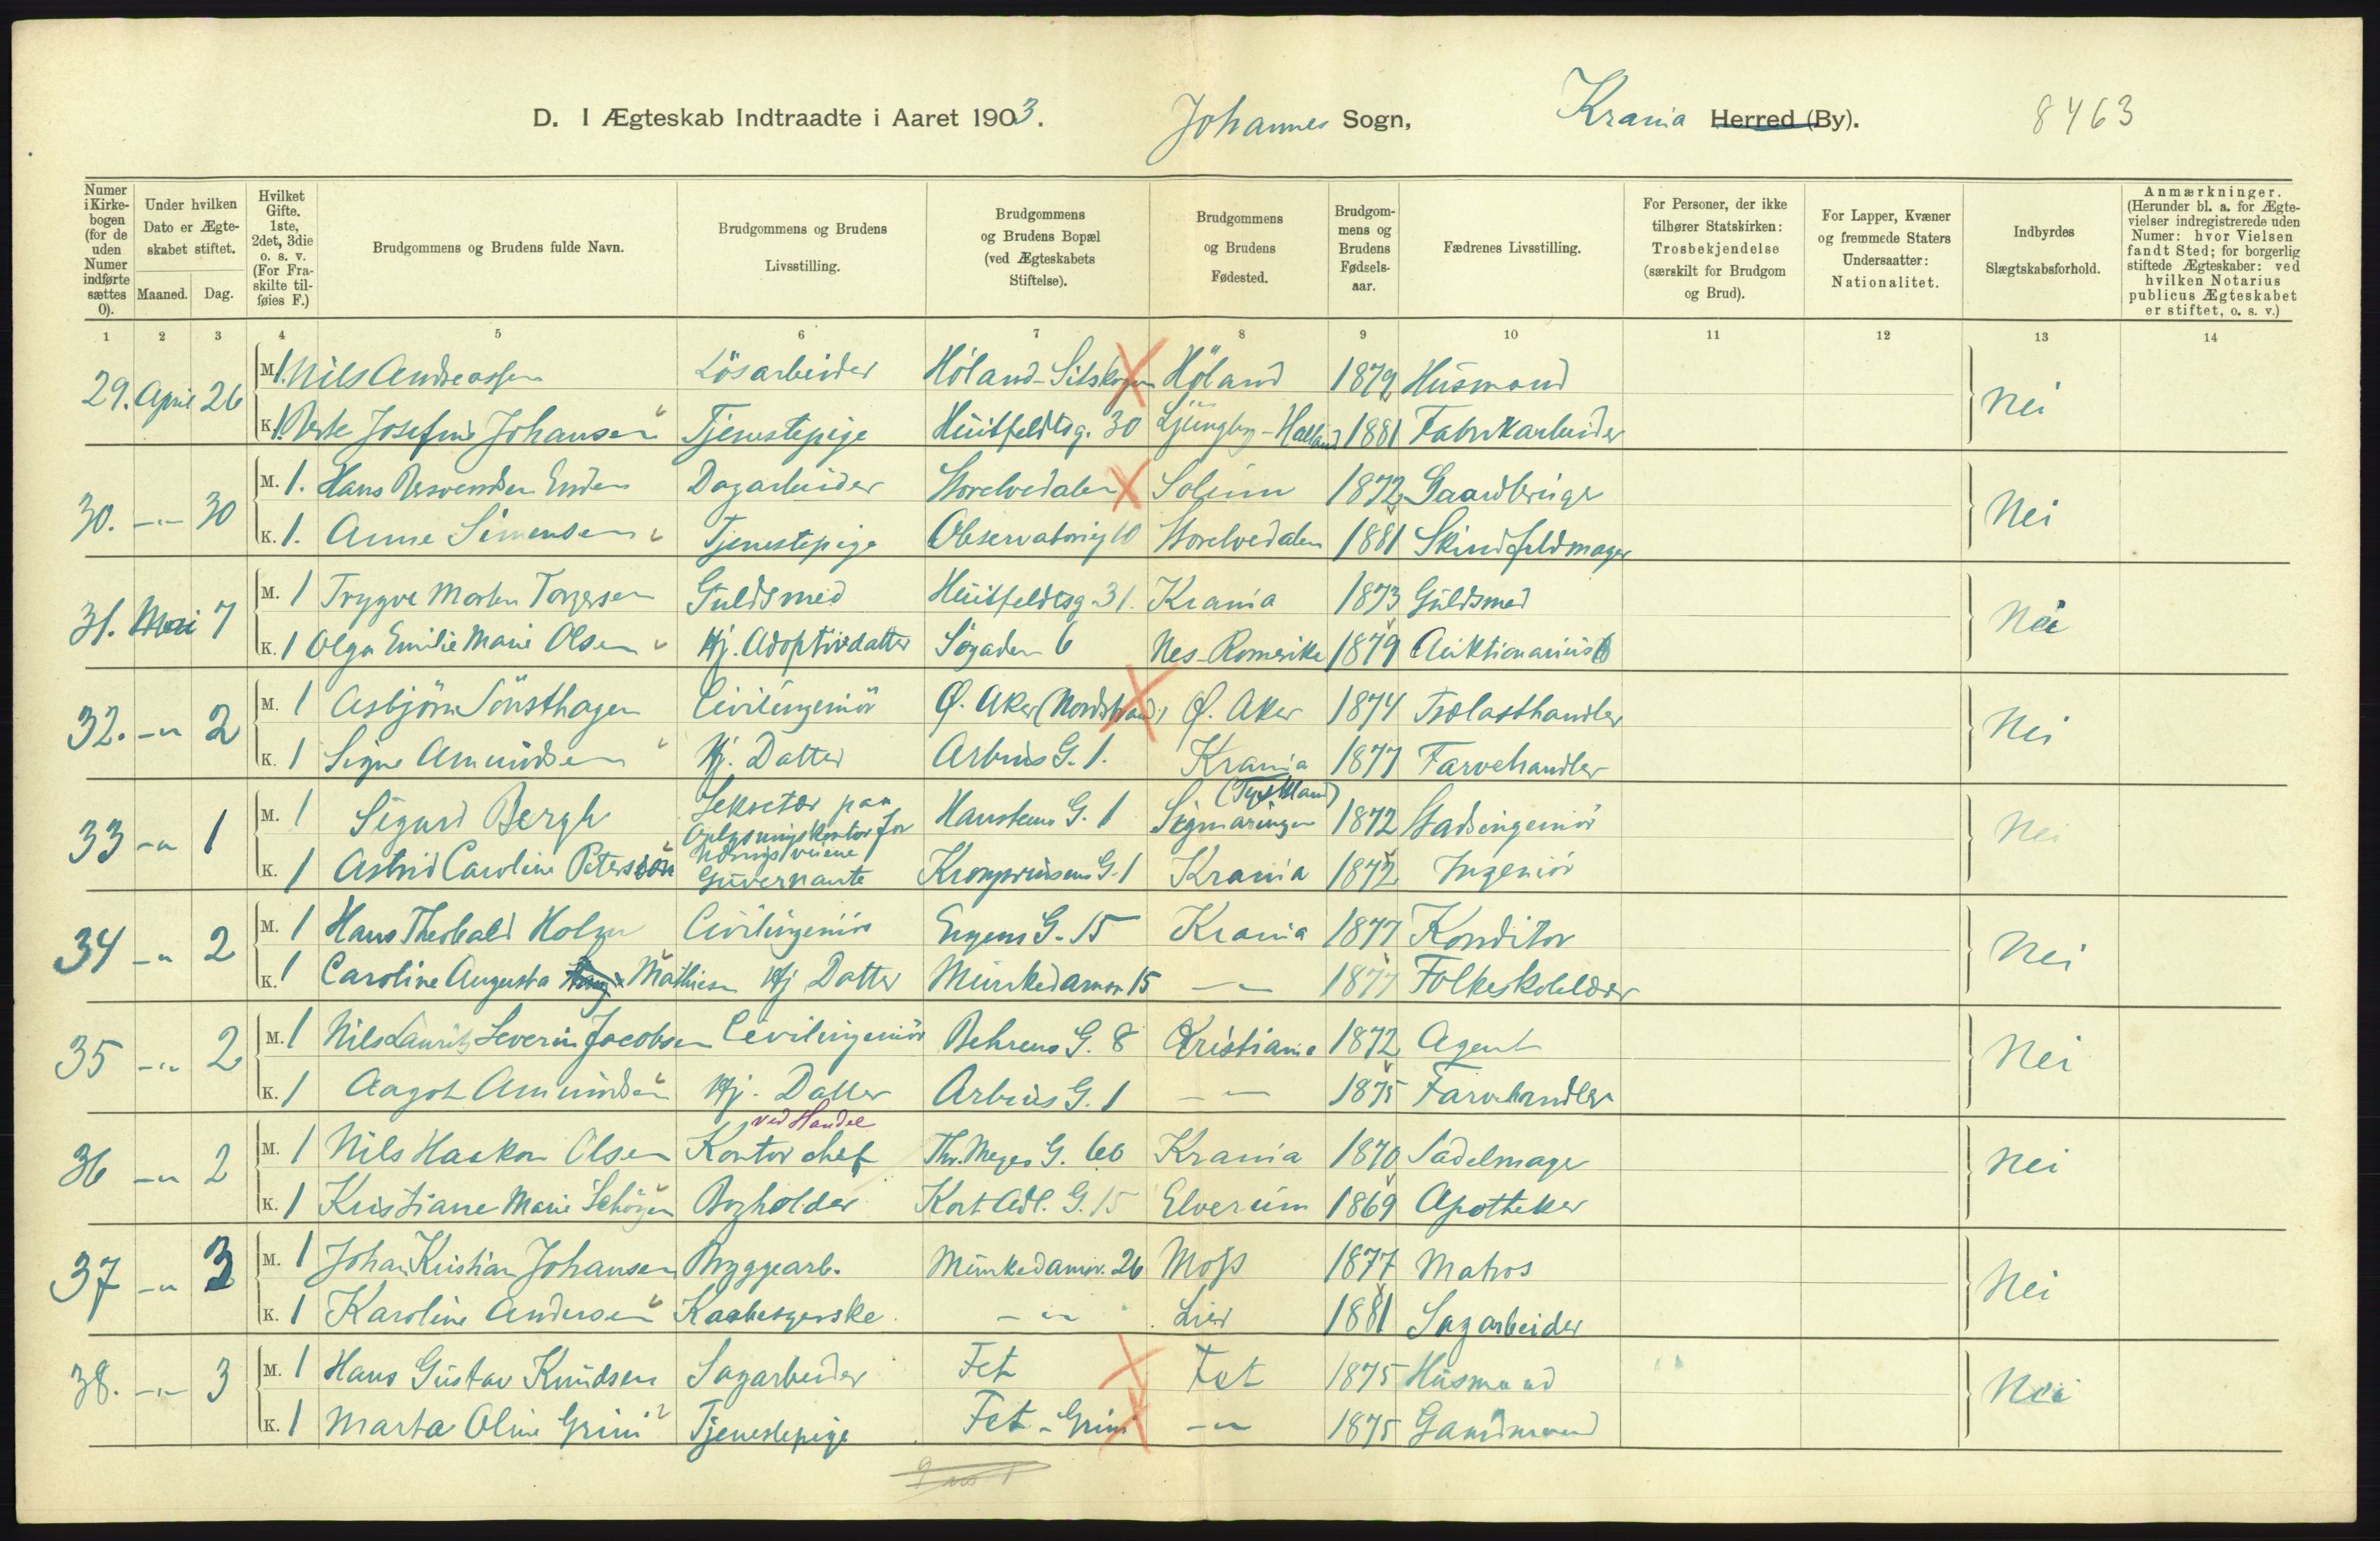 D. I Ægteskab Indtraadte i Aaret 1903. Johannes Sogn, Krania Herred (By). 8463
Numer i Kirke-bogen (for de uden Numer indførte sættes 0). Under hvilken Dato er Ægte-skabet stiftet. Maaned. Dag. Hvilket Gifte. 1ste, 2det, 3die o. s. v. (For Fra-skilte til-føies F.) Brudgommens og Brudens fulde Navn. Brudgommens og Brudens Livsstilling. Brudgommens og Brudens Bopæl (ved Ægteskabets Stiftelse). Brudgommens og Brudens Fødested. Brudgom-mens og Brudens Fødsels-aar. Fædrenes Livsstilling. For Personer, der ikke tilhører Statskirken: Trosbekjendelse (særskilt for Brudgom og Brud). For Lapper, Kvæner og fremmede Staters Undersaatter: Nationalitet. Indbyrdes Slægtskabsforhold. Anmærkninger. (Herunder bl. a. for Ægte-vielser indregistrerede uden Numer: hvor Vielsen fandt Sted; for borgerlig stiftede Ægteskaber: ved hvilken Notarius publicus Ægteskabet er stiftet, o. s. v.)
1 2 3 4 5 6 7 8 9 10 11 12 13 14
29. April 26 M. 1. Nils Andreassen Lösarbeider Höland - Höland 1879 Husmand Nei
K. 1. Josefine Johansen Tjenestepige Huitfeldtsg. 30 Ljungby - Halland 1881 Fabrikarbeider
30. -"- 30 M. 1. Hans Dagarbeider Storelvedalen Solum 1872 Gaardbruger Nei
K. 1. Anne Simensen Tjenestepige Observatorieg 10 Storelvedalen 1881 Skindfeldmager
31. Mai 7 M. 1 Trygve Morten Torgersen Guldsmed Huitfeldtsg. 31. Krania 1873 Guldsmed Nei
K. 1 Olga Emilie Marie Olsen Hj. Adoptivdatter Søgaden 6 Nes - Romerike 1879 Auktionarius
32. -"- 2 M. 1 Asbjörn Sönsthagen Civilingeniör Ø. Aker (Nordstrand) Ø. Aker 1874 Trælasthandler Nei
K. 1 Signe Amundsen Hj. Datter Arbins G. 1. Krania 1877 Farvehandler
33 -"- 1 M. 1 Sigurd Bergh Sekretær paa Oplysningskontor for Næringsveiene Hanstens G. 1 Sigmaringen (Tyskland) 1872 Stadsingeniör Nei
K. 1 Astrid Caroline Peterson Guvernante Kronprinsens G. 1 Krania 1872 Ingeniör
34 -"- 2 M. 1 Hans Theobald Holm Civilingeniör G. 15 Krania 1877 Konditor Nei
K. 1 Caroline Augusta Mathiesen Hj Datter Munkedamsv 15 -"- 1877 Folkeskolelærer
35 -"- 2 M. 1 Nils Lauritz Severin Jacobsen Civilingeniör Behrens G. 8 Kristiania 1872 Agent Nei
K. 1 Aagot Amundsen Hj. Datter Arbins G. 1 -"- 1875 Farvehandler
36 -"- 2 M. 1 Nils Haakon Olsen Kontorchef ved Handel Thv. Meyers G. 60 Krania 1870 Sadelmager Nei
K. 1 Kristiane Marie Bogholder Kort Adl. G. 15 Elverum 1869 Apotheker
37 -"- 3 M. 1 Johan Kristian Johansen Bryggearb. Munkedamsv. 26 Moss 1877 Matros Nei
K. 1 Karoline Andersen Kaabesyerske -"- Lier 1881 Sagarbeider
38. -"- 3 M. 1 Hans Gustav Knudsen Sagarbeider Fet Fet 1875 Husmand Nei
K. 1 Marta Oline Grini Tjenestepige Fet - Grini -"- 1875 Gaardmand